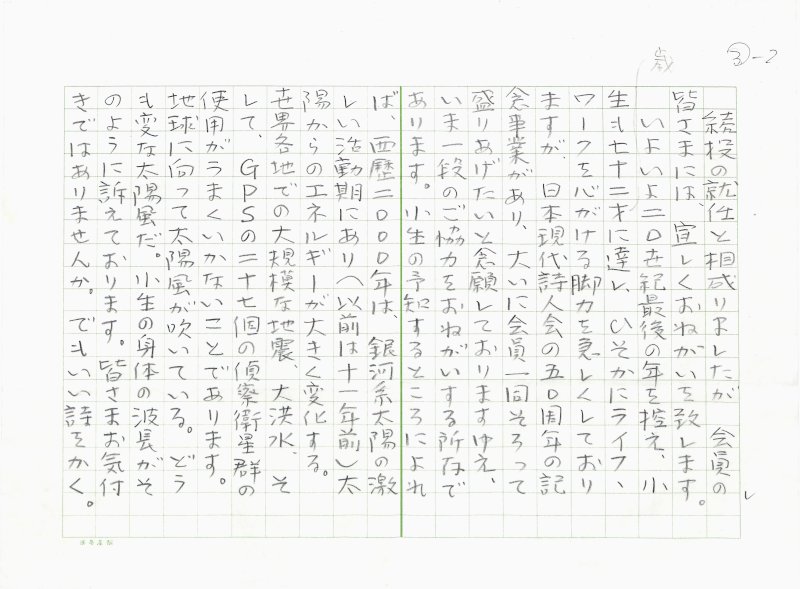 ③-2
歳
続投の就任と相成りましたが 会員の
皆さまには、宜しくおねがいを致します。
いよいよ二〇世紀最後の年を控え、小
生も七十二才に達し、ひそかにライフ、
ワークを心がける脚力を急しくしており
ますが、日本現代詩人会の五〇周年の記
念事業があり、大いに会員一同そろって
盛りあげたいと念願しておりますゆえ、
いま一段のご協力をおねがいする所存で
あります。小生の予知するところによれ
ば、西暦二〇〇〇年は、銀河系太陽の激
しい活動期にあり（以前は十一年前）太
陽からのエネルギーが大きく変化する。
世界各地での大規模な地震、大洪水、そ
して、GPSの二十七個の偵察衛星群の
使用がうまくいかないことであります。
地球に向って太陽風が吹いている。どう
も変な太陽風だ。小生の身体の波長がそ
のように訴えております。皆さまお気付
きではありませんか。でもいい詩をかく。